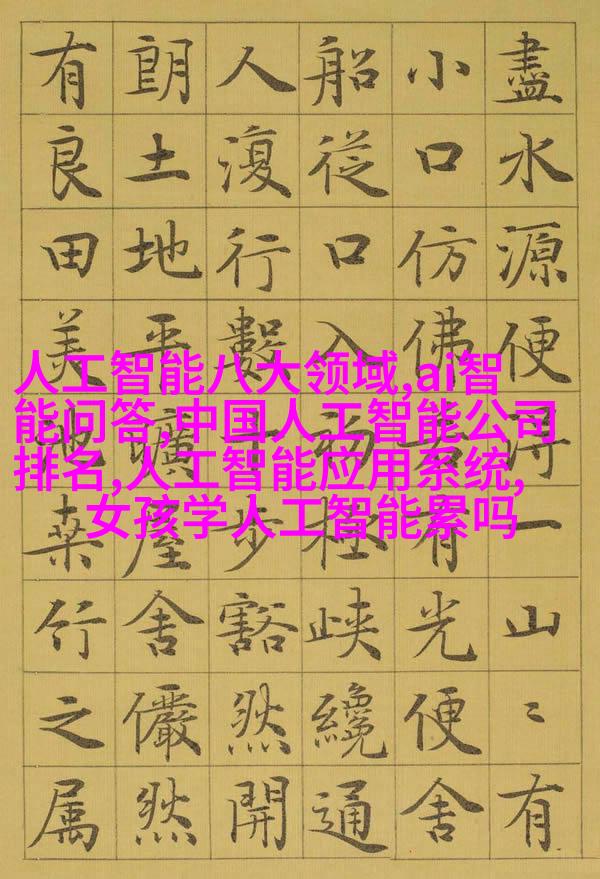 盡水源便得一山〻有
小口仿佛若有光便舍
船從口入初極峽纔通
人復行數十步豁然開
朗土地平曠屋舍儼然
有良田美池桑竹之属
人工智能八大领域,ai智
能问答,中国人工智能公司
排名,人工智能应用系统,
女孩学人工智能累吗